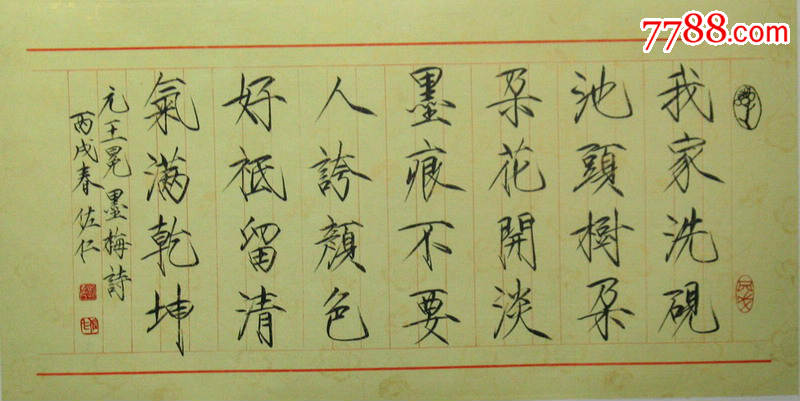 7788.com
我家洗硯
池頭樹朶
朶花開淡
墨痕不要
人誇顏色
好祗留清
氣滿乾坤
元王冕墨梅詩
丙戌春佐仁